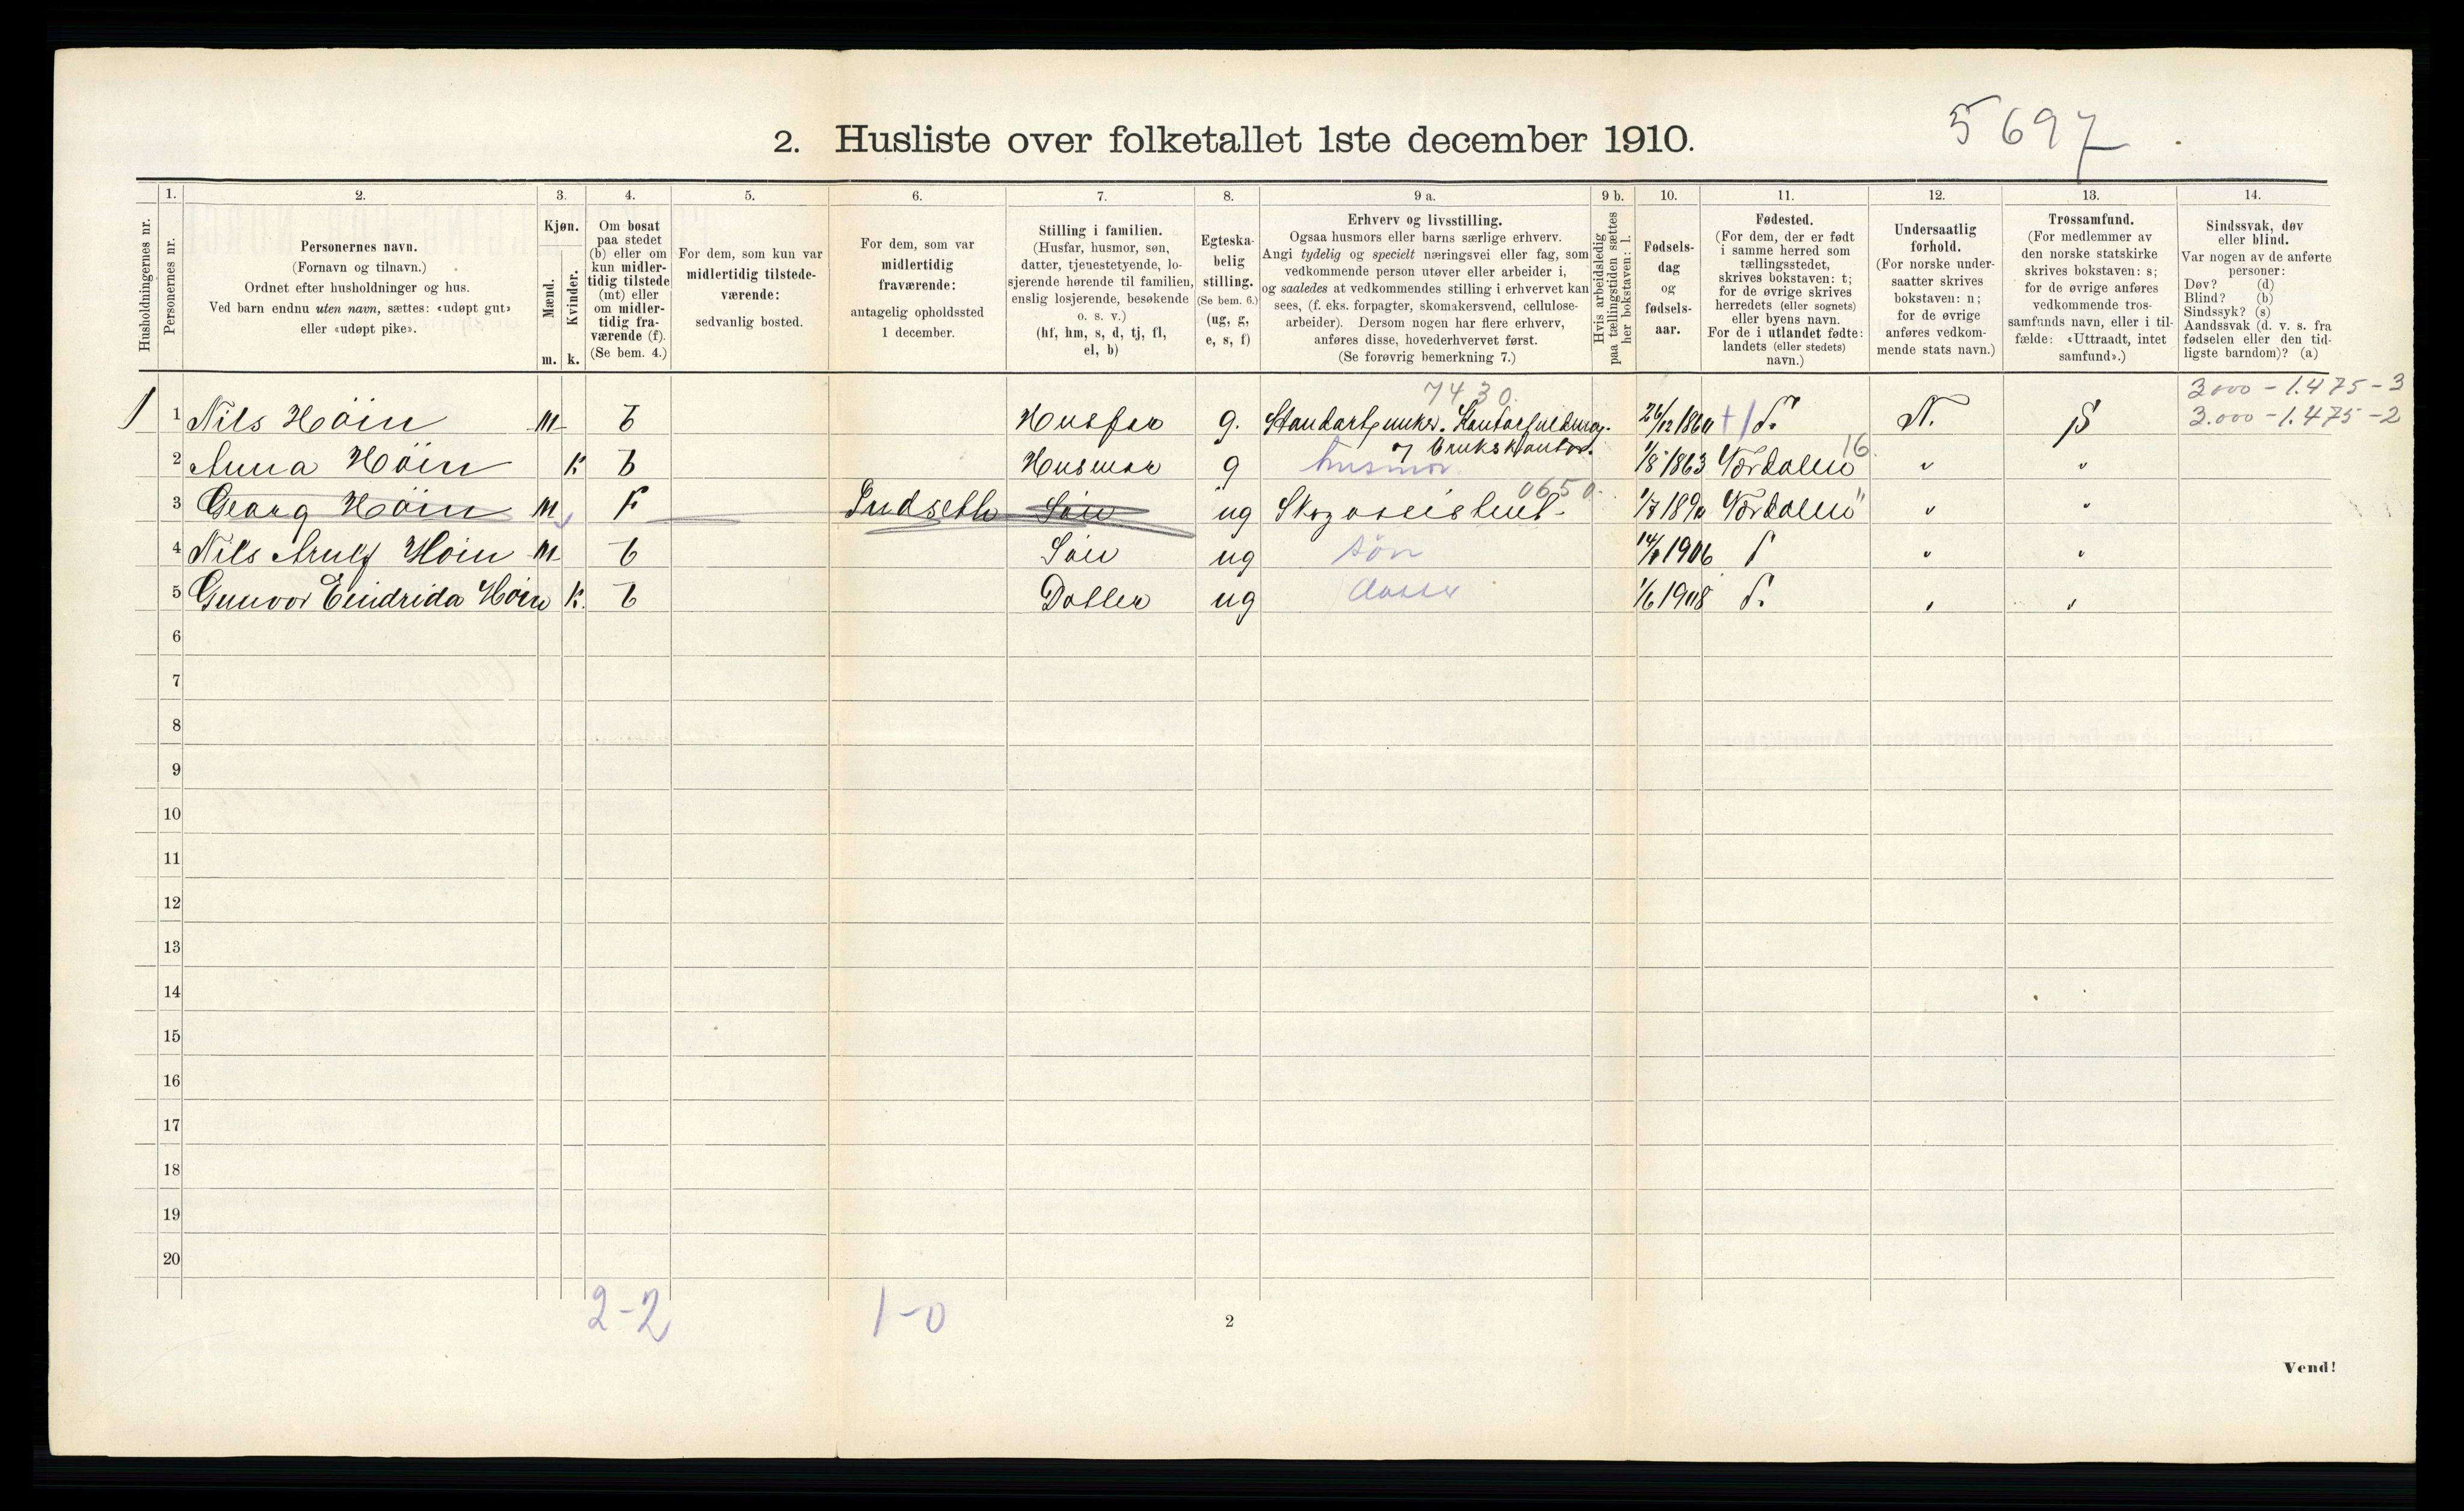 5697
2. Husliste over folketallet 1ste december 1910.
Husholdningernes nr.
1.
Personernes nr.
2.
Personernes navn.
(Fornavn og tilnavn.)
Ordnet efter husholdninger og hus.
Ved barn endnu uten navn, sættes: «udøpt gut»
eller «udøpt pike».
3.
Kjøn.
Mænd.
Kvinder.
m. k.
4.
Om bosat
paa stedet
(b) eller om
kun midler-
tidig tilstede
(mt) eller
om midler-
tidig fra-
værende (f).
(Se bem. 4.)
5.
For dem, som kun var
midlertidig tilstede-
værende:
sedvanlig bosted.
6.
For dem, som var
midlertidig
fraværende:
antagelig opholdssted
1 december.
7.
Stilling i familien.
(Husfar, husmor, søn,
datter, tjenestetyende, lo-
sjerende hørende til familien,
enslig losjerende, besøkende
o. s. v.)
(hf, hm, s, d, tj, fl,
el, b)
8.
Egteska-
belig
stilling.
(Se bem. 6.)
(ug, g,
e, s, f)
9 a.
Erhverv og livsstilling.
Ogsaa husmors eller barns særlige erhverv.
Angi tydelig og specielt næringsvei eller fag, som
vedkommende person utøver eller arbeider i,
og saaledes at vedkommendes stilling i erhvervet kan
sees, (f. eks. forpagter, skomakersvend, cellulose-
arbeider). Dersom nogen har flere erhverv,
anføres disse, hovederhvervet først.
(Se forøvrig bemerkning 7.)
9 b.
Hvis arbeidsledig
paa tællingstiden sættes
her bokstaven: l.
10.
Fødsels-
dag
og
fødsels-
aar.
11.
Fødested.
(For dem, der er født
i samme herred som
tællingsstedet,
skrives bokstaven: t;
for de øvrige skrives
herredets (eller sognets)
eller byens navn.
For de i utlandet fødte:
landets (eller stedets)
navn.)
12.
Undersaatlig
forhold.
(For norske under-
saatter skrives
bokstaven: n;
for de øvrige
anføres vedkom-
mende stats navn.)
13.
Trossamfund.
(For medlemmer av
den norske statskirke
skrives bokstaven: s;
for de øvrige anføres
vedkommende tros-
samfunds navn, eller i til-
fælde: «Uttraadt, intet
samfund».)
14.
Sindssvak, døv
eller blind.
Var nogen av de anførte
personer:
Døv? (d)
Blind? (b)
Sindssyk? (s)
Aandssvak (d. v. s. fra
fødselen eller den tid-
ligste barndom)? (a)
7430. 3000 - 1.475 - 3
1 1 Nils Höin M b Husfar g. 26/12 1860 T. N. S 3.000 - 1.475 - 2
2 Anna Höin K b Husmor g husmor 1/8 1863 Værdalen 16. " "
0650.
3 Georg Höin M F Indsethe Søn ug Skogassistent 1/7 1890 Værdalen " "
4 Nils Arulf Höin M b Søn ug søn 1906 T " "
5 Gunvor Eindrida Höin K. b Datter ug datter 1/6 1908 T. " "
6
7
8
9
10
11
12
13
14
15
16
17
18
19
20
2-2 1-0
2
Vend!